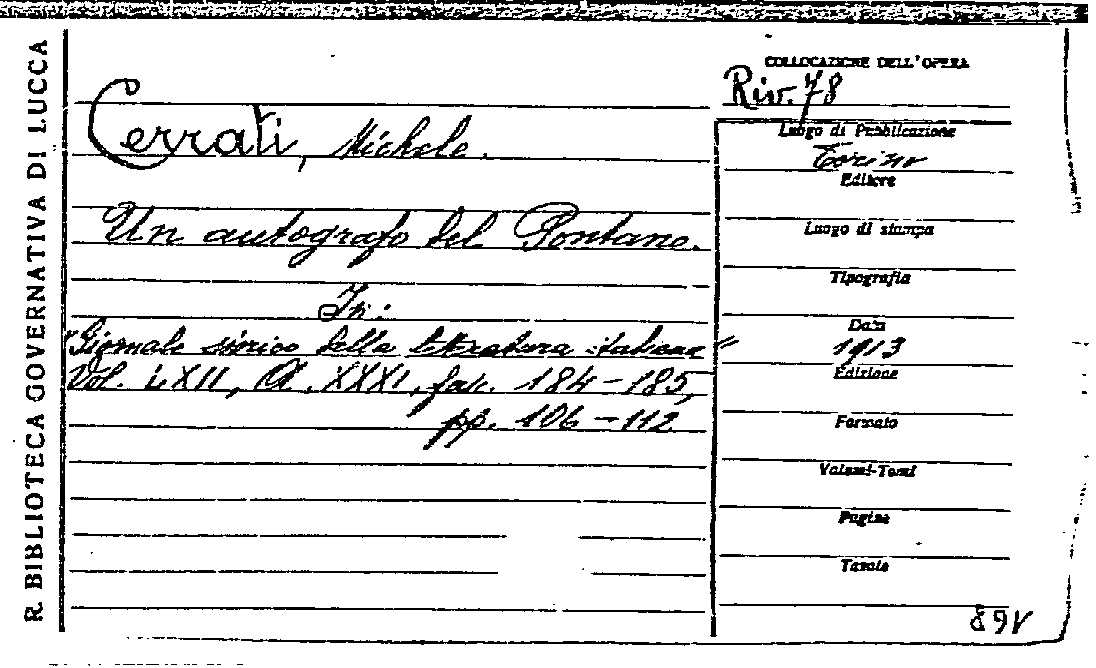 R. BIBLIOTECA GOVERNATIVA DI LUCCA
Cerrati, Michele.
Un autografo del Pontano.
In:
"Giornale storico della letteratura italiana"
Vol. LXII, A. XXXI, fasc. 184-185,
pp. 106-112
COLLOCAZIONE DELL'OPERA
Riv. 78
Luogo di Pubblicazione
Torino
Editore
Luogo di stampa
Tipografia
Data
1913
Edizione
Formato
Volumi-Tomi
Pagine
Tavole